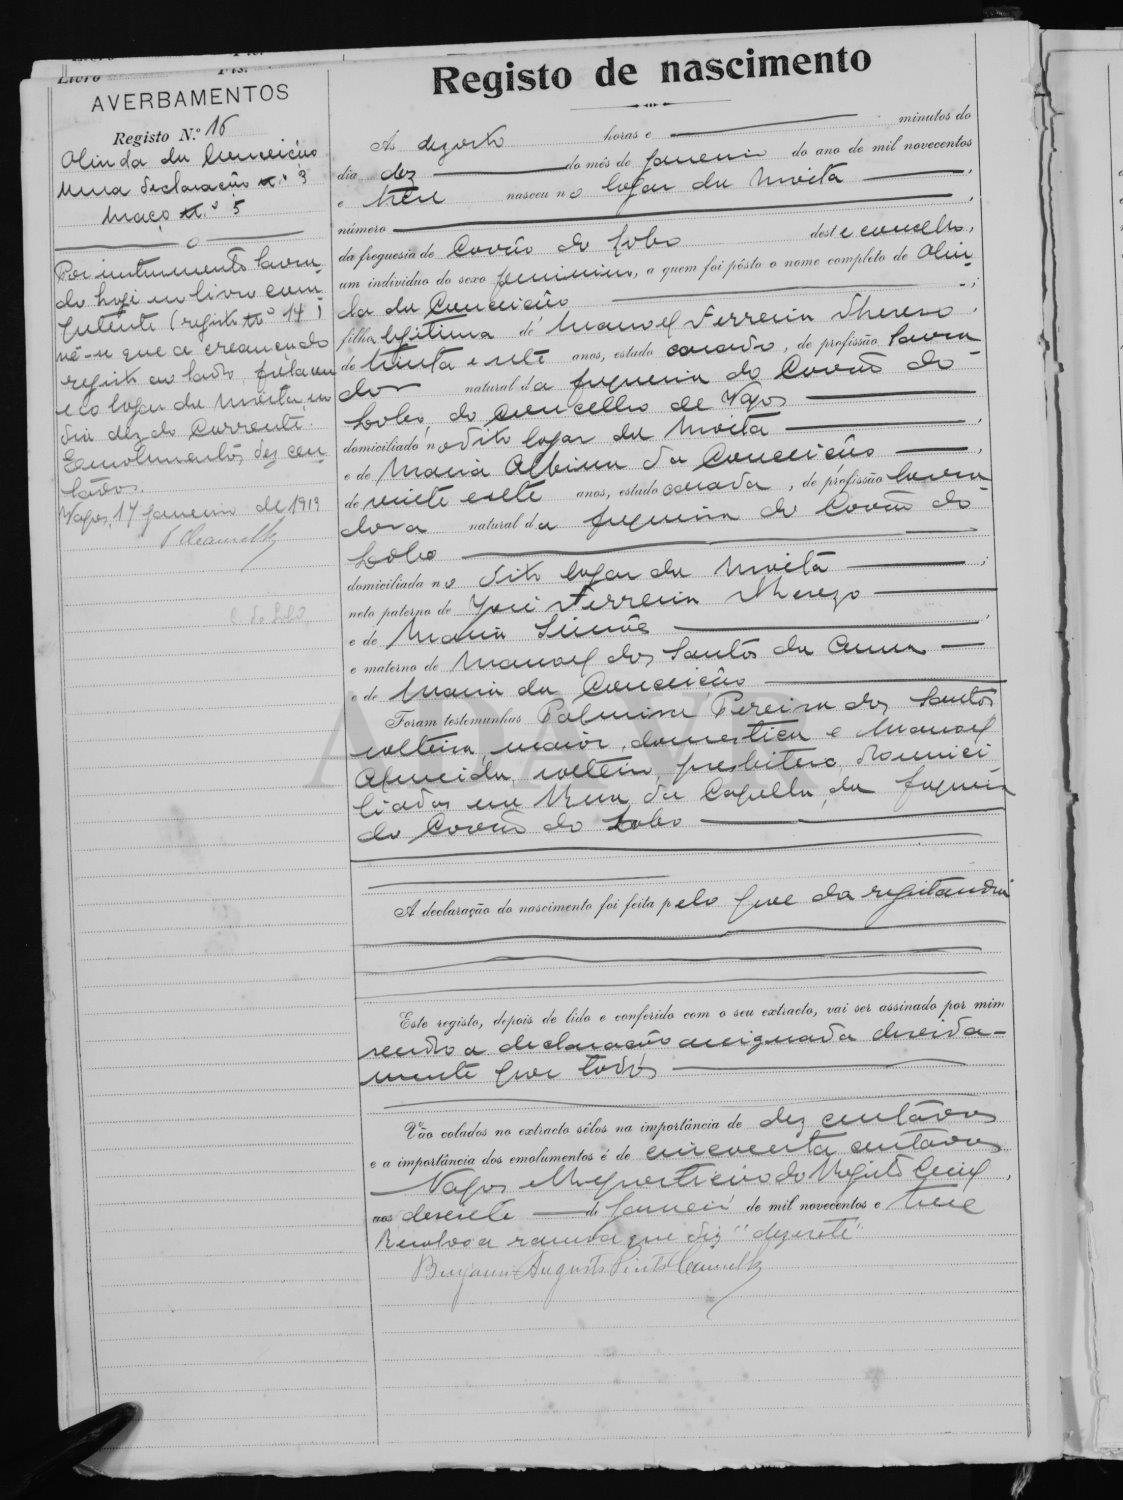 Livro Fls.
AVERBAMENTOS
Registo N.º 16
Olinda da Conceição
Uma declaração n.º 3
Maço n.º 5
Por instrumento lavra-
do hoje em livro com-
petente (registo nº 14)
vê-se que a creança do
registo ao lado, faleceu
no logar da Moita, no
dia dez do corrente.
Emolumentos, dez cen-
tavos.
Vagos, 17 janeiro de 1913
C. do Lobo
Registo de nascimento
Às dezoito horas e minutos do
dia dez do mês de janeiro do ano de mil novecentos
e treze nasceu no logar da Moita,
número
da freguesia de Covão do Lobo deste concelho,
um indivíduo do sexo feminino, a quem foi pôsto o nome completo de Olin-
da da Conceição;
filha legitima de Manoel Ferreira Therezo,
de trinta e sete anos, estado casado, de profissão lavra-
dor natural da freguesia do Covão do
Lobo, do Concelho de Vagos
domiciliado no dito logar da Moita,
e de Maria Albina da Conceição,
de vinte e sete anos, estado casada, de profissão lavra-
dora natural da freguesia do Covão do
Lobo
domiciliada no dito logar da Moita;
neto paterno de José Ferreira Therezo
e de Maria Simões,
e materno de Manoel dos Santos da Cunha
e de Maria da Conceição
Foram testemunhas Palmira Pereira dos Santos
solteira, maior, domestica e Manoel
Almeida, solteiro, presbitero, domici-
liados em da Capella, da freguesia
do Covão do Lobo
A declaração do nascimento foi feita pelo pae da registanda
Este registo, depois de lido e conferido com o seu extracto, vai ser assinado por mim
sendo a declaração assignada devida-
mente por todos
Vão colados no extracto sêlos na importância de dez centavos
e a importância dos emolumentos é de cincoenta centavos
Vagos e Repartição do Registo Civil,
aos desesete de Janeiro de mil novecentos e treze
Resalvo a rasura que diz "dezesete"
Benjamin Augusto Pinto Camello
ADAVR